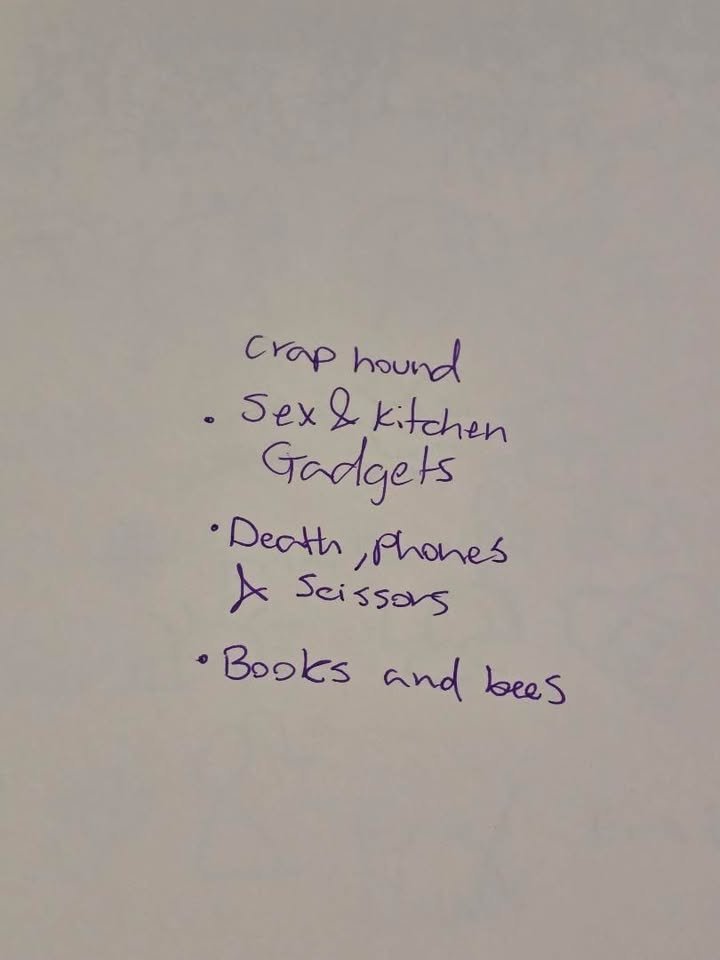 Crap hound
• Sex & kitchen
Gadgets
• Death, phones
& Scissors
• Books and bees